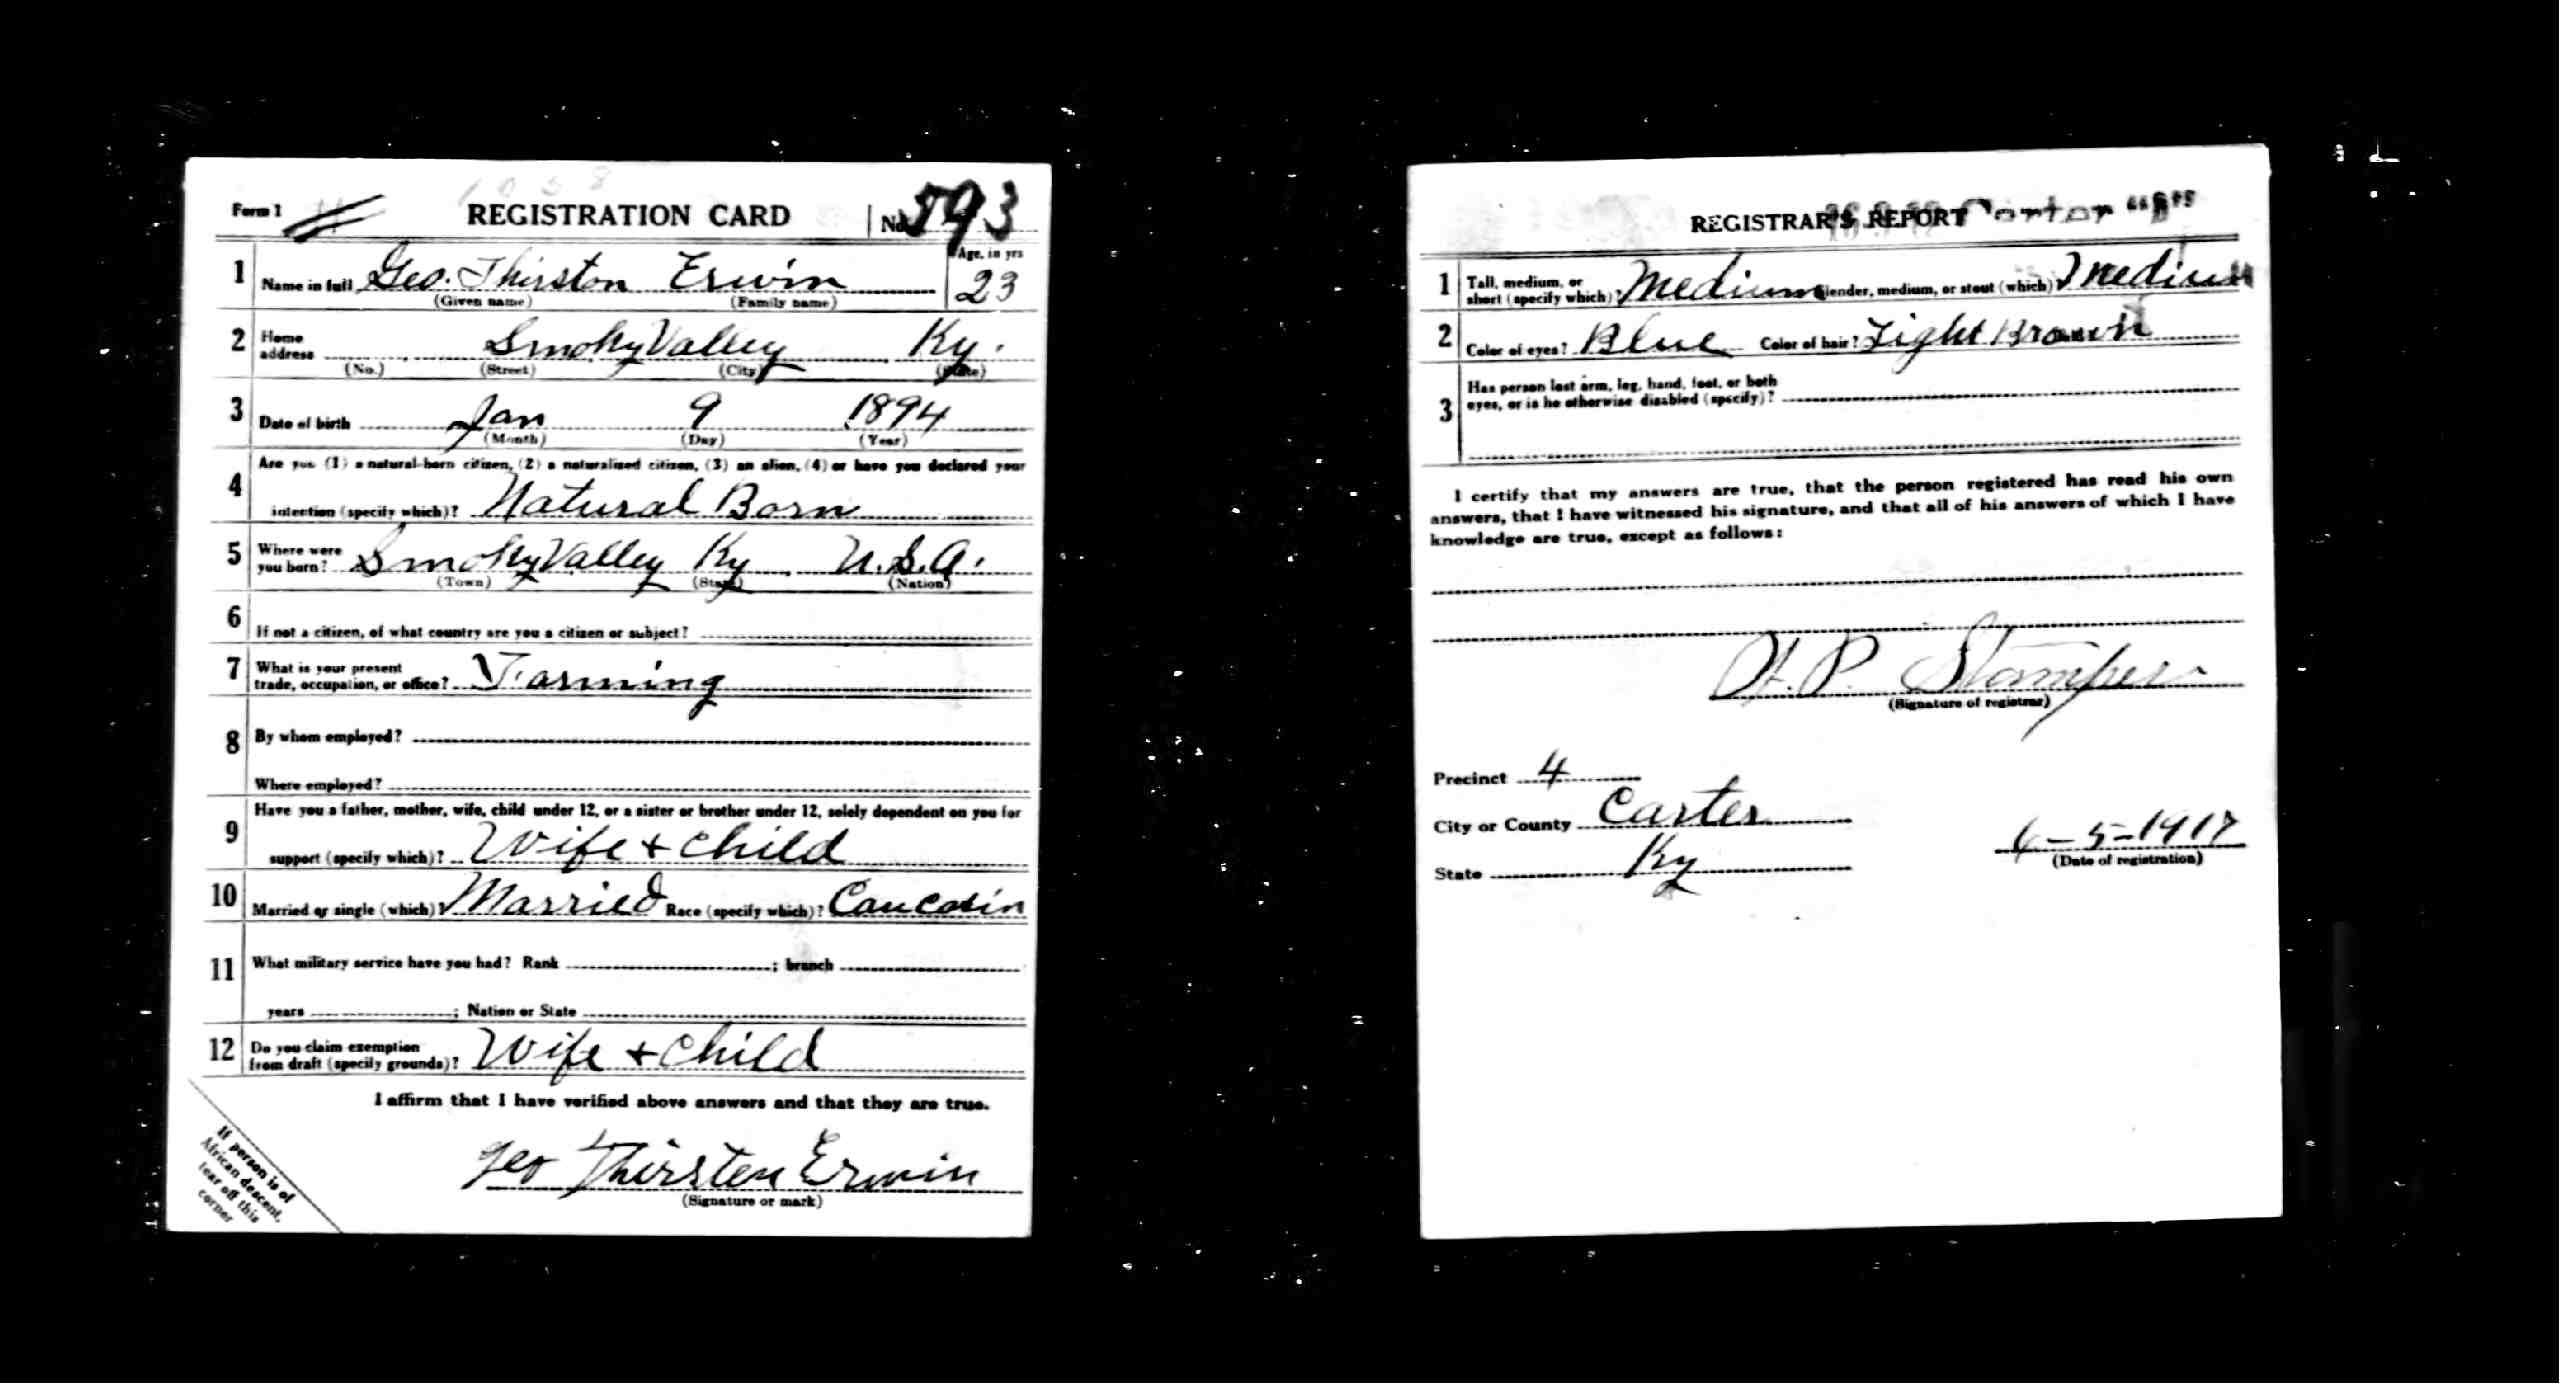 1058
Form 1 REGISTRATION CARD No. 593
1 Name in full Geo. Thirston Erwin Age, in yrs 23
(Given name) (Family name)
2 Home address Smoky Valley Ky.
(No.) (Street) (City) (State)
3 Date of birth Jan 9 1894
(Month) (Day) (Year)
4 Are you (1) a natural-born citizen, (2) a naturalized citizen, (3) an alien, (4) or have you declared your
intention (specify which)? Natural Born
5 Where were you born? Smoky Valley Ky U.S.A.
(Town) (State) (Nation)
6 If not a citizen, of what country are you a citizen or subject?
7 What is your present
trade, occupation, or office? Farming
8 By whom employed?
Where employed?
9 Have you a father, mother, wife, child under 12, or a sister or brother under 12, solely dependent on you for
support (specify which)? Wife + child
10 Married or single (which)? Married Race (specify which)? Caucasin
11 What military service have you had? Rank ; branch
years ; Nation or State
12 Do you claim exemption
from draft (specify grounds)? Wife + child
I affirm that I have verified above answers and that they are true.
Geo Thirsten Erwin
(Signature or mark)
If person is of
African descent,
tear off this
corner
REGISTRAR'S REPORT Carter "B"
1 Tall, medium, or
short (specify which)? Medium Slender, medium, or stout (which)? Medium
2 Color of eyes? Blue Color of hair? Light Brown
3 Has person lost arm, leg, hand, foot, or both
eyes, or is he otherwise disabled (specify)?
I certify that my answers are true, that the person registered has read his own
answers, that I have witnessed his signature, and that all of his answers of which I have
knowledge are true, except as follows:
H. P. Stamper
(Signature of registrar)
Precinct 4
City or County Carter
State Ky
6-5-1917
(Date of registration)